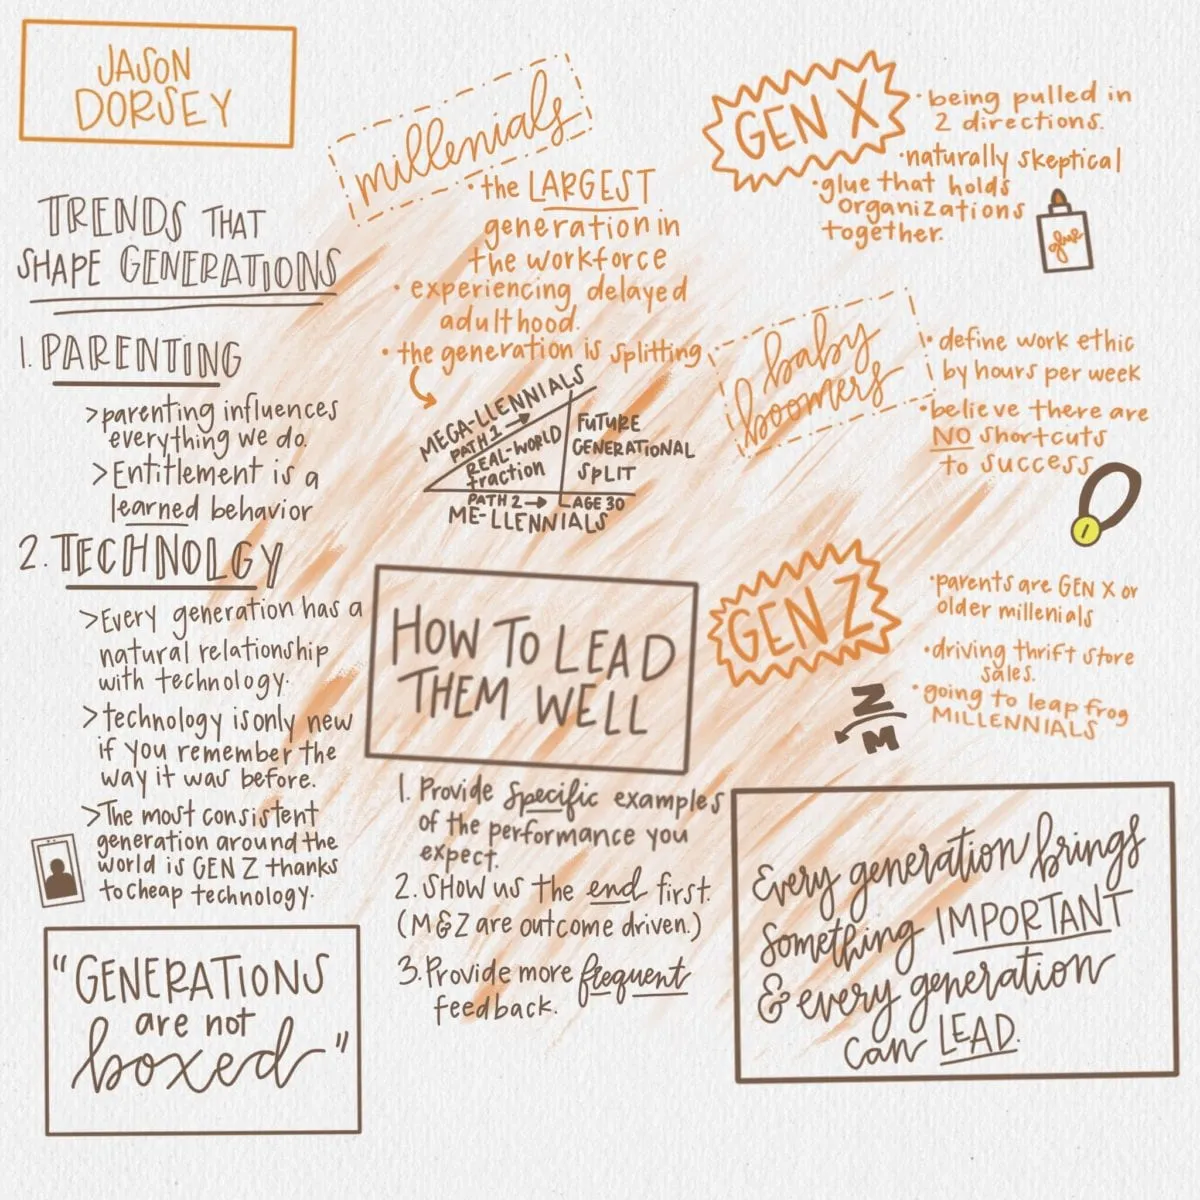 JASON
DORSEY
TRENDS THAT
SHAPE GENERATIONS
1. PARENTING
>parenting influences
everything we do.
>Entitlement is a
learned behavior
2. TECHNOLGY
>Every generation has a
natural relationship
with technology.
>technology is only new
if you remember the
way it was before.
>The most consistent
generation around the
world is GEN Z thanks
to cheap technology.
"GENERATIONS
are not
boxed"
millenials
• the LARGEST
generation in
the workforce
• experiencing delayed
adulthood.
• the generation is splitting
MEGA-LLENNIALS
PATH 1 →
REAL-WORLD
traction
FUTURE
GENERATIONAL
SPLIT
PATH 2 →
AGE 30
ME-LLENNIALS
HOW TO LEAD
THEM WELL
1. Provide specific examples
of the performance you
expect.
2. SHOW us the end first.
(M & Z are outcome driven.)
3. Provide more frequent
feedback.
GEN X
• being pulled in
2 directions.
• naturally skeptical
• glue that holds
organizations
together.
glue
baby
boomers
• define work ethic
by hours per week
• believe there are
NO shortcuts
to success
1
GEN Z
• parents are GEN X or
older millenials
• driving thrift store
sales.
• going to leap frog
MILLENNIALS
Z
M
Every generation brings
something IMPORTANT
& every generation
can LEAD.